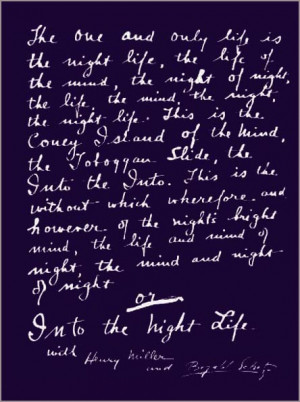 The one and only life is
the night life, the life of
the mind, the night of night,
the life, the mind, the night,
the night life. This is the
Coney Island of the Mind,
the Toboggan Slide, the
Into the Into. This is the
without which wherefore and
however of the night's bright
mind, the life and mind of
night, the mind and night
of night
or
Into the Night Life
with Henry Miller
and Bezalel Schatz